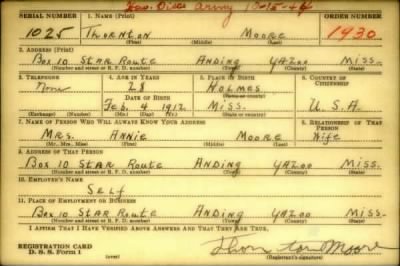 Hon. Disc. Army 10-15-44
SERIAL NUMBER 1. NAME (Print) ORDER NUMBER
1025 THORNTON MOORE 1930
(First) (Middle) (Last)
2. ADDRESS (Print)
Box 10 STAR ROUTE ANDING YAZOO MISS.
(Number and street or R. F. D. number) (Town) (County) (State)
3. TELEPHONE 4. AGE IN YEARS 5. PLACE OF BIRTH 6. COUNTRY OF CITIZENSHIP
None 28 HOLMES
DATE OF BIRTH (Town) (County)
Feb. 4 1912 MISS. U.S.A.
(Mo.) (Day) (Yr.) (State or country)
7. NAME OF PERSON WHO WILL ALWAYS KNOW YOUR ADDRESS 8. RELATIONSHIP OF THAT PERSON
MRS. ANNIE MOORE Wife
(Mr., Mrs., Miss) (First) (Middle) (Last)
9. ADDRESS OF THAT PERSON
Box 10 STAR ROUTE ANDING YAZOO MISS.
(Number and street or R. F. D. number) (Town) (County) (State)
10. EMPLOYER'S NAME
SELF
11. PLACE OF EMPLOYMENT OR BUSINESS
Box 10 STAR ROUTE ANDING YAZOO MISS.
(Number and street or R. F. D. number) (Town) (County) (State)
I AFFIRM THAT I HAVE VERIFIED ABOVE ANSWERS AND THAT THEY ARE TRUE.
REGISTRATION CARD
D. S. S. Form 1 (over) Thornton Moore
(Registrant's signature)